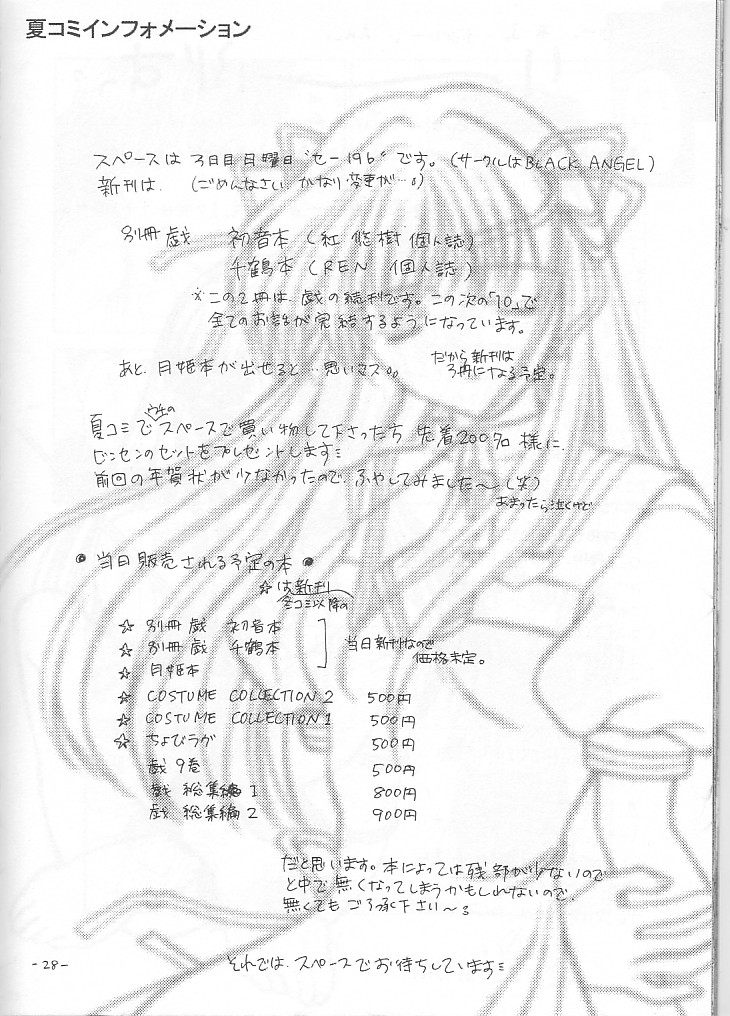 夏コミインフォメーション
スペースは 3日目 日曜日 "セー19b" です。(サークルはBLACK ANGEL)
新刊は、(ごめんなさい、かなり変更が…。)
別冊 戯 初音本 (紅 悠樹 個人誌)
千鶴本 (REN 個人誌)
※この2冊は、戯の続刊です。この次の「10」で
全てのお話が完結するようになっています。
あと、月姫本が出せると…思いマス。。
だから新刊は
3冊になる予定。
夏コミでウチのスペースで買い物して下さった方 先着200名様に、
ビンセンのセットをプレゼントします
前回の年賀状が少なかったので、ふやしてみました〜(笑)
あまったら泣くけど
● 当日販売される予定の本 ●
☆は新刊
冬コミ以降の
☆ 別冊 戯 初音本
☆ 別冊 戯 千鶴本
☆ 月姫本
当日新刊なので
価格未定。
☆ COSTUME COLLECTION 2 500円
☆ COSTUME COLLECTION 1 500円
☆ ちょびラヴ 500円
戯 9巻 500円
戯 総集編 1 800円
戯 総集編 2 900円
だと思います。本によっては残部が少ないので
と中で無くなってしまうかもしれないので、
無くてもご了承下さい〜。
それでは、スペースでお待ちしています
-28-